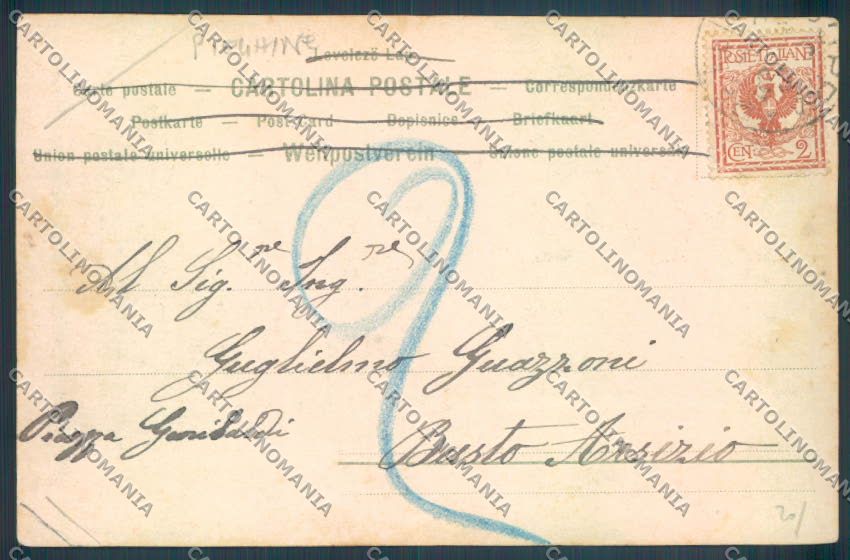 Levelező Lap
Carte postale — CARTOLINA POSTALE — Correspondenzkarte
Postkarte — Post Card — Dopisnice — Briefkaart
Union postale universelle — Weltpostverein — Unione postale universale
POSTE ITALIANE
CEN. 2
Al Sig.re Ing.re
Guglielmo Guazzoni
Piazza Garibaldi
Busto Arsizio
20/
CARTOLINOMANIA